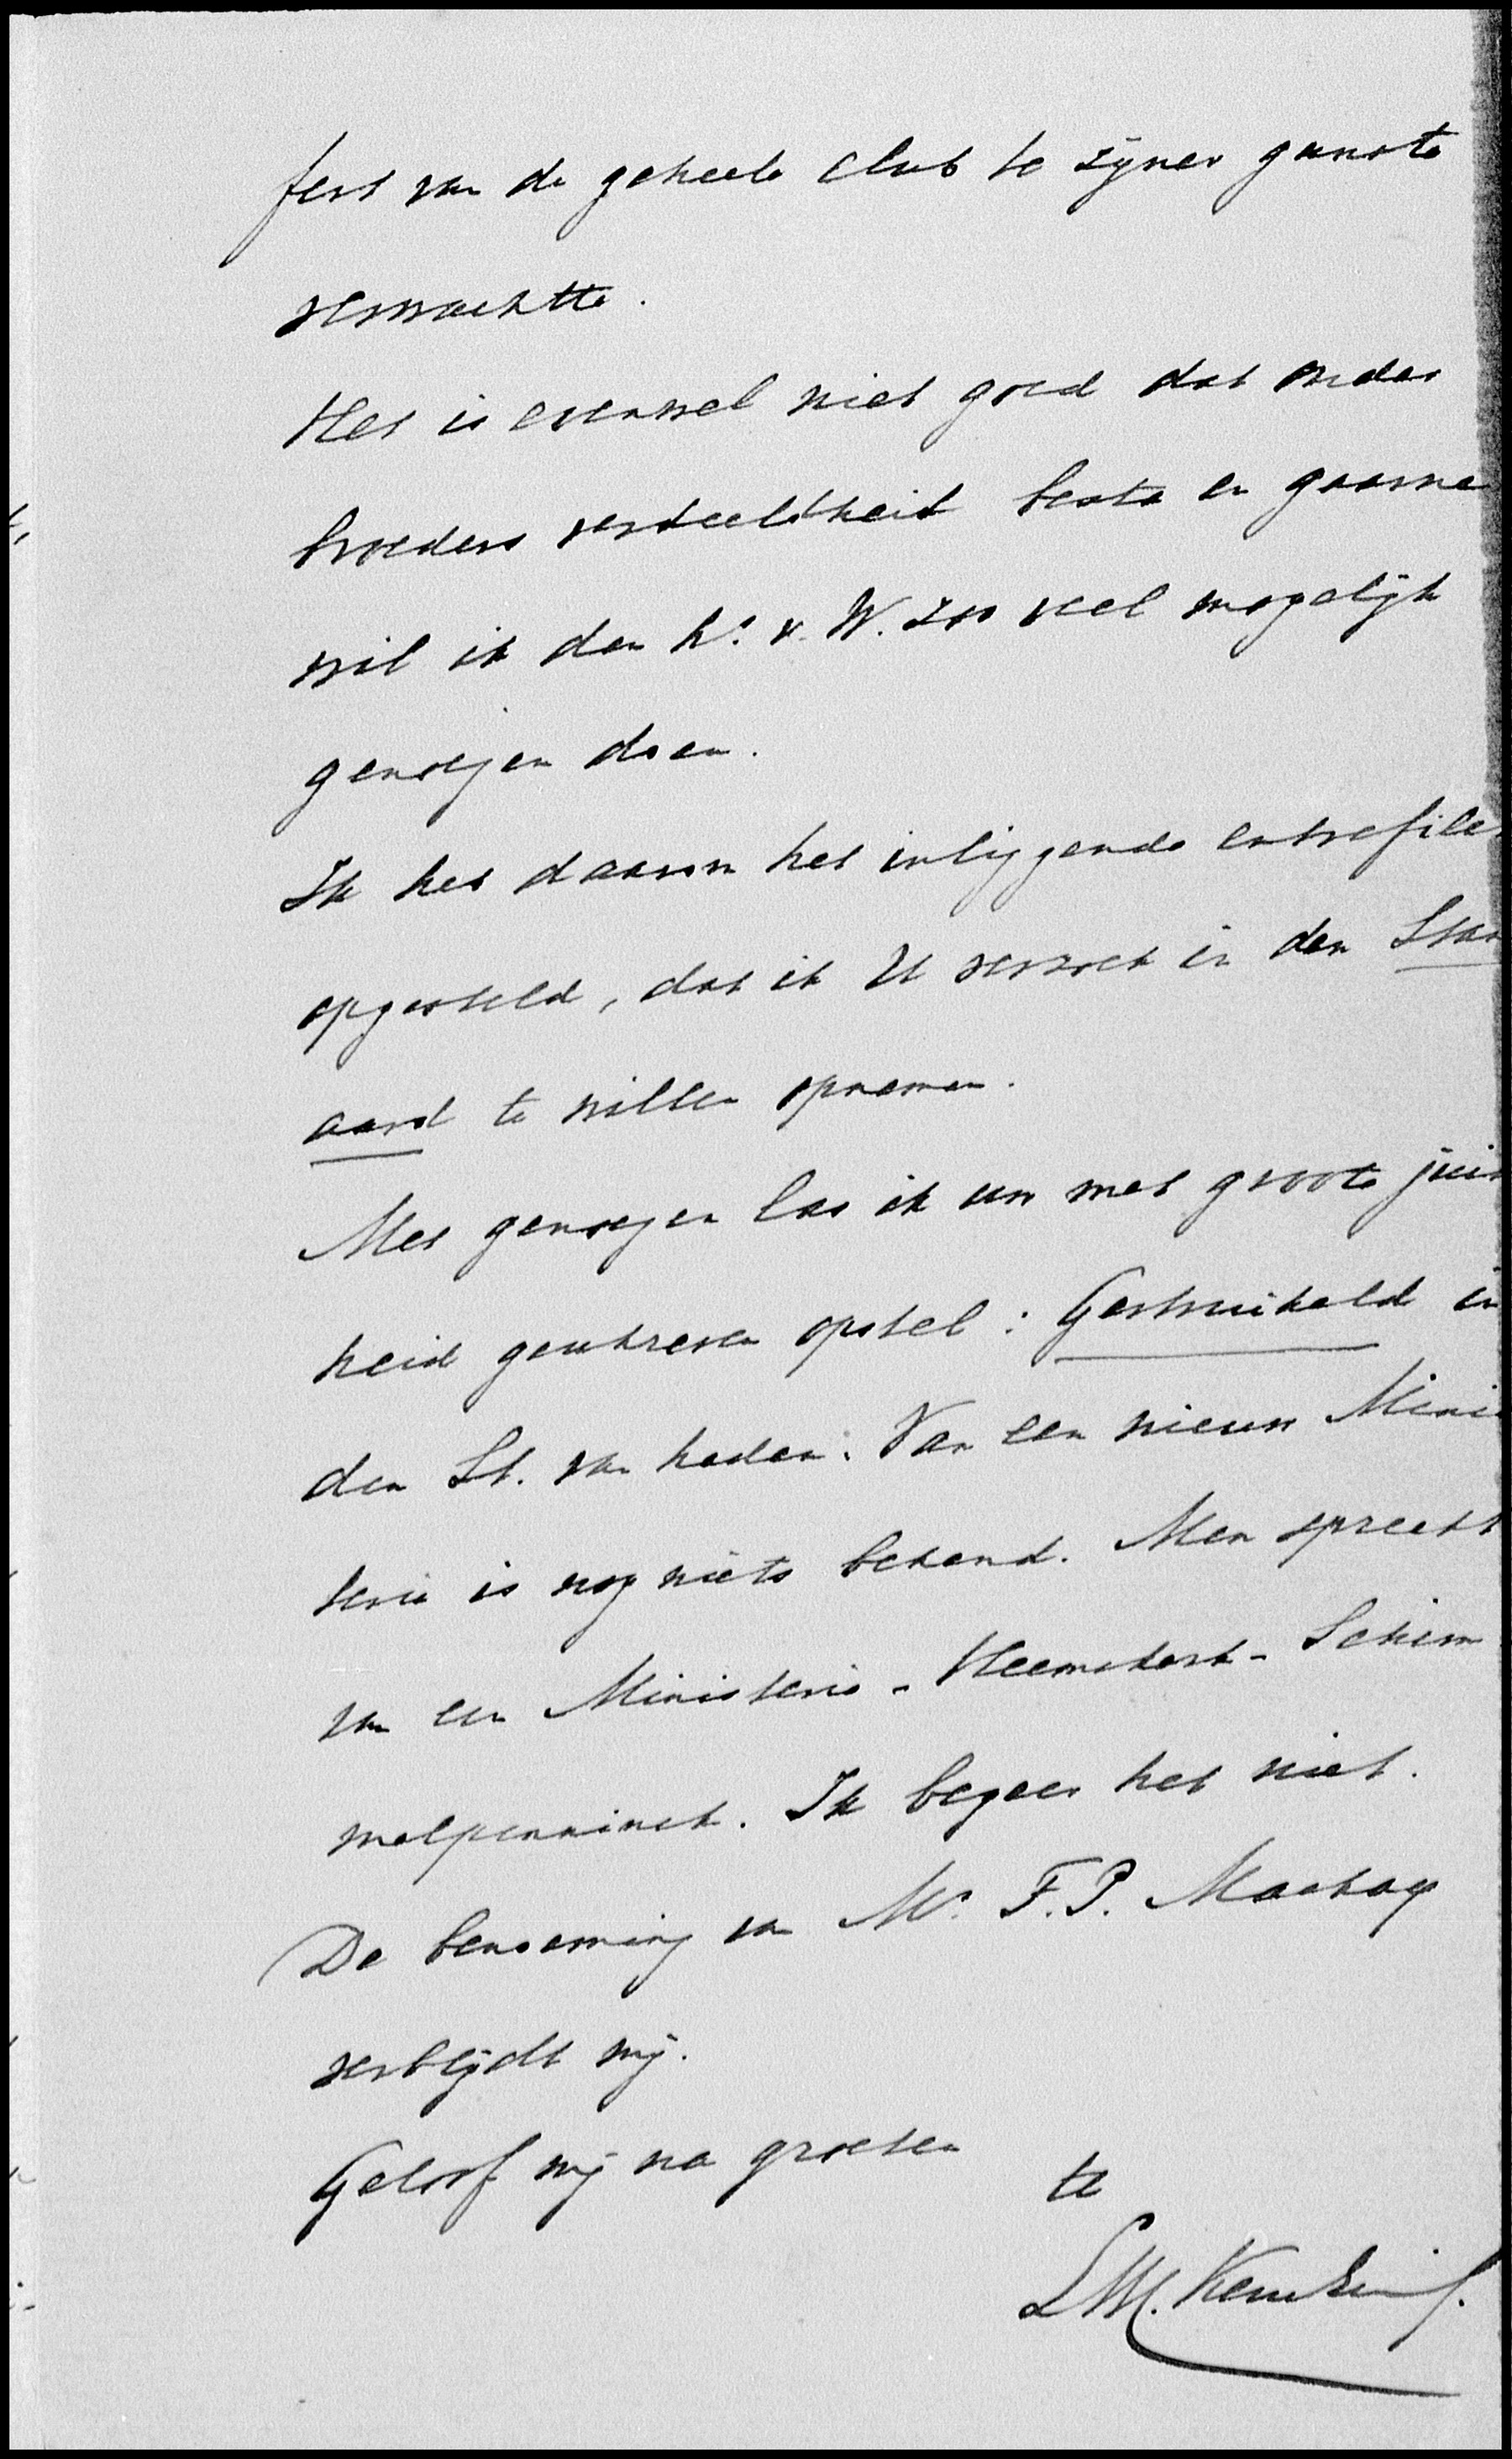 fest van de geheele club te zijner gunste
verwachtte.
Het is evenwel niet goed dat onder
broeders verdeeldheid besta en gaarne
wil ik den hr. v. W. zoo veel mogelijk
genoegen doen.
Ik heb daarom het inliggende entrefilet
opgesteld, dat ik U verzoek in den Stan
aard te willen opnemen.
Met genoegen las ik uw met groote juist
heid geschreven opstel: Gestruikeld in
den St. van heden. Van een nieuw Minis
terie is nog niets bekend. Men spreekt
van een Ministerie-Heemskerk-Schim
melpenninck. Ik begeer het niet.
De benoeming van Mr. F.P. Mackay
verblijdt mij.
Geloof mij na groeten
tt